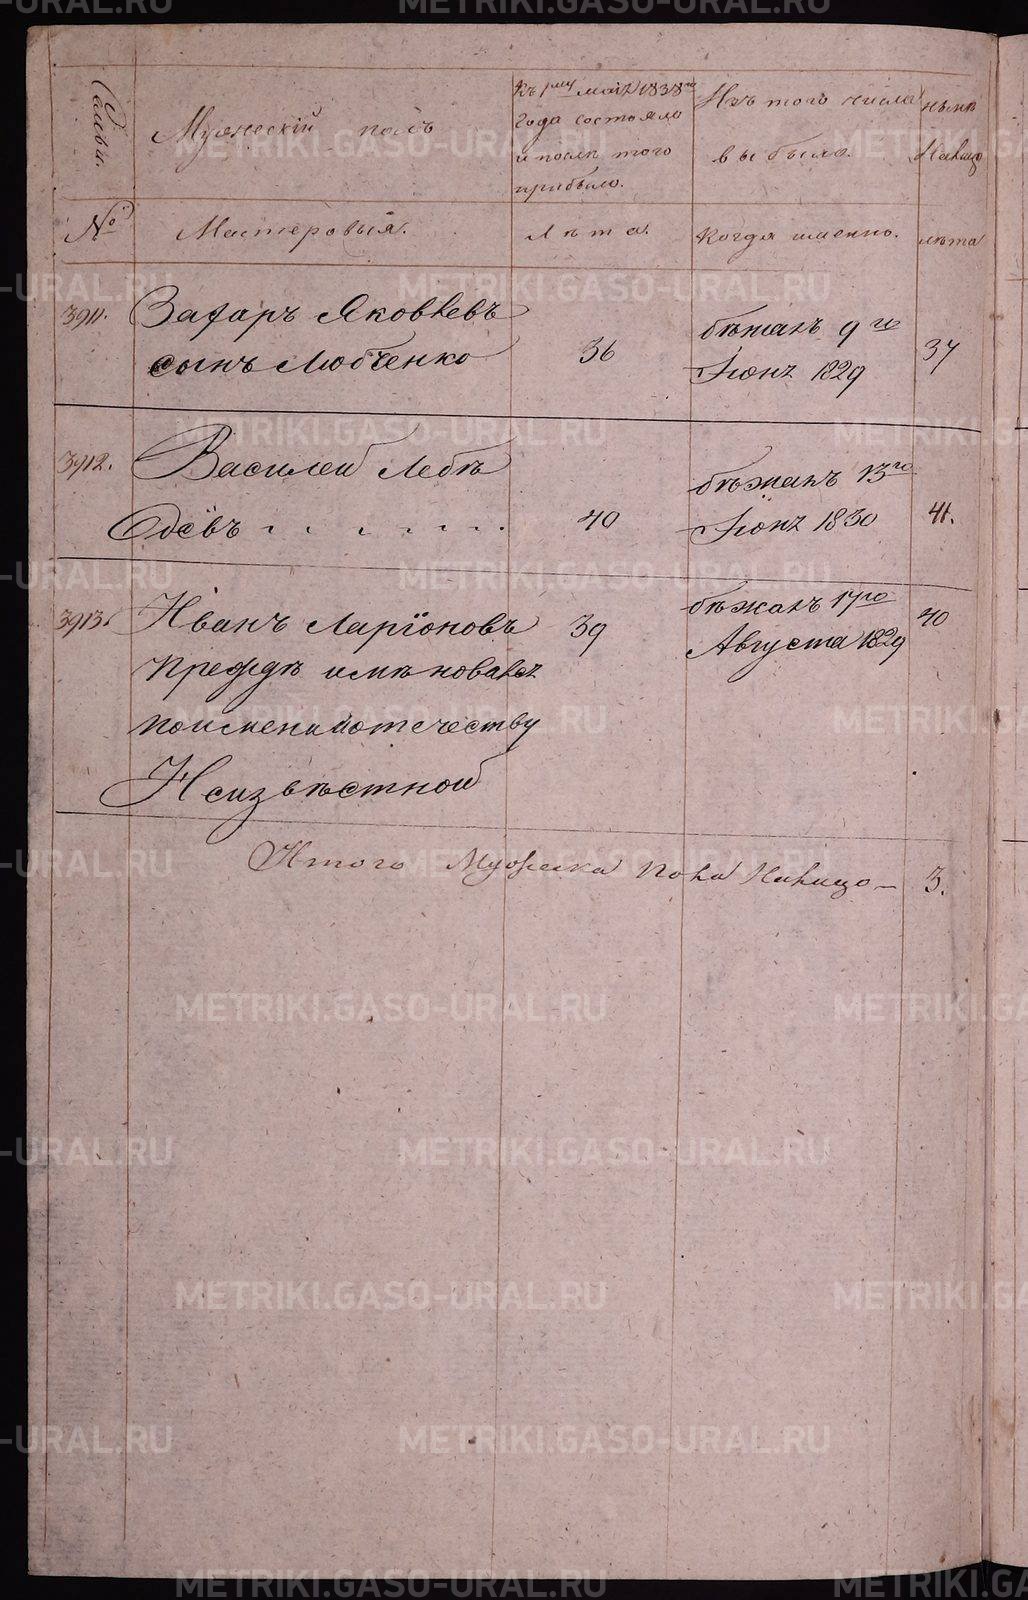 Мужескій полъ
Къ 1му маія 1838го
года состояло
и послѣ того
прибыло.
Изъ того числа
выбыло.
нынѣ
Налицо
№
Мастеровыя.
Лѣта.
Когда именно.
лѣта
3911.
Захаръ Яковлевъ
сынъ Любченко
36
бѣжалъ 9го
Іюня 1829
37
3912.
Василей Лебѣ
Одёвъ
40
бѣжалъ 13го
Іюня 1830
41.
3913.
Иванъ Ларіоновъ
Преждѣ имѣновался
поимени иотечеству
Неизвѣстной
39
бѣжалъ 17го
Августа 1829
40
Итого Мужеска пола Налицо — 3.
METRIKI.GASO-URAL.RU